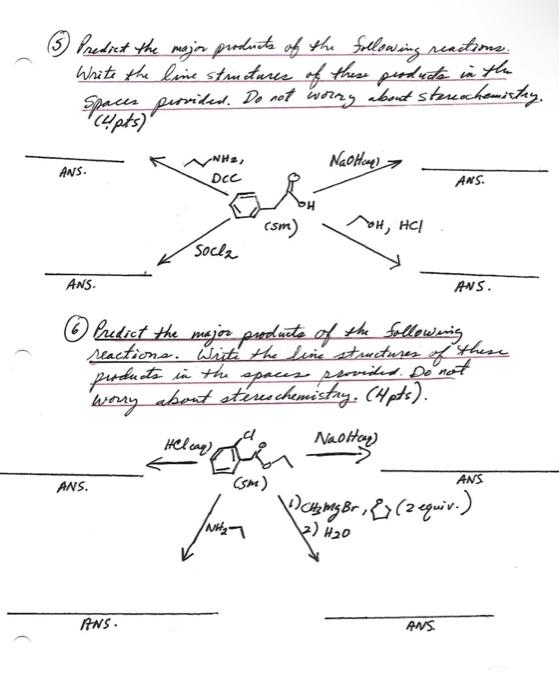 ⑤ Predict the major products of the following reactions.
Write the line structures of these products in the
spaces provided. Do not worry about stereochemistry.
(4pts)
NH2,
DCC
NaOH(aq)
ANS.
ANS.
O
OH
(SM)
OH, HCl
SOCl2
ANS.
ANS.
⑥ Predict the major products of the following
reactions. Write the line structures of these
products in the spaces provided. Do not
worry about stereochemistry. (4pts).
HCl(aq)
Cl
O
O
NaOH(aq)
ANS.
(SM)
ANS
1) CH3MgBr, (2 equiv.)
2) H2O
NH2
ANS.
ANS.